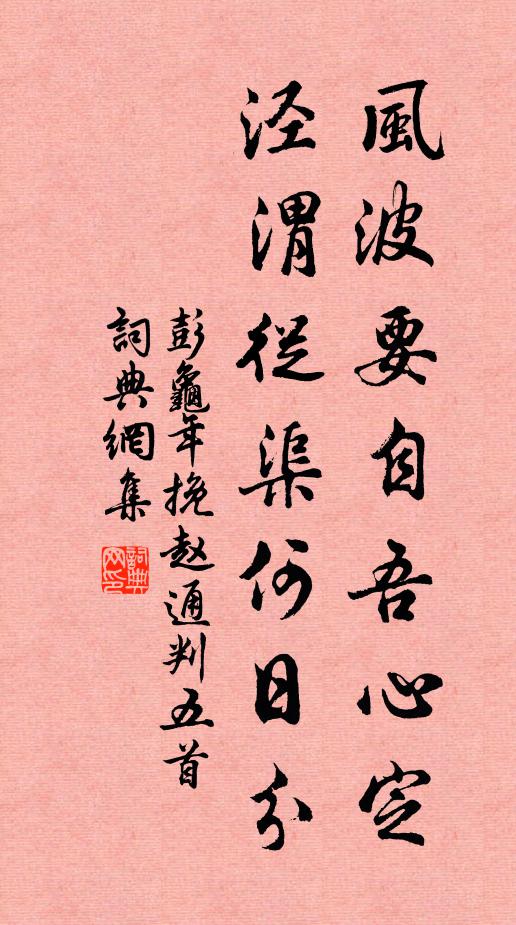 風波要自吾心定
泾渭從渠何日分
彭龜年挽赵通判五首
詞典網集
詞典网印